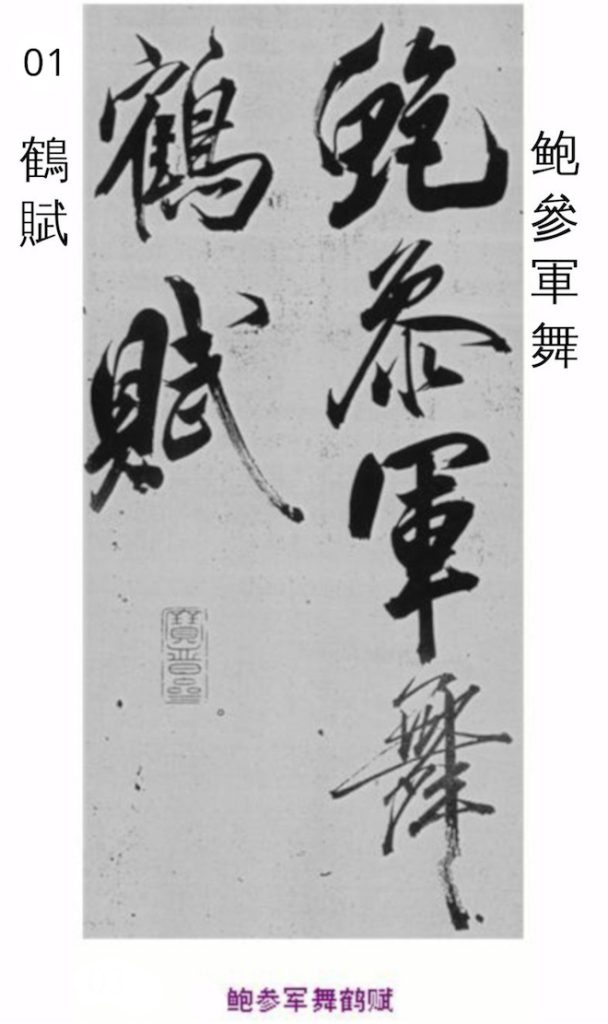 01
鲍參軍舞
鶴賦
鮑參軍舞
鶴賦
寶晉齋
鲍参军舞鹤赋